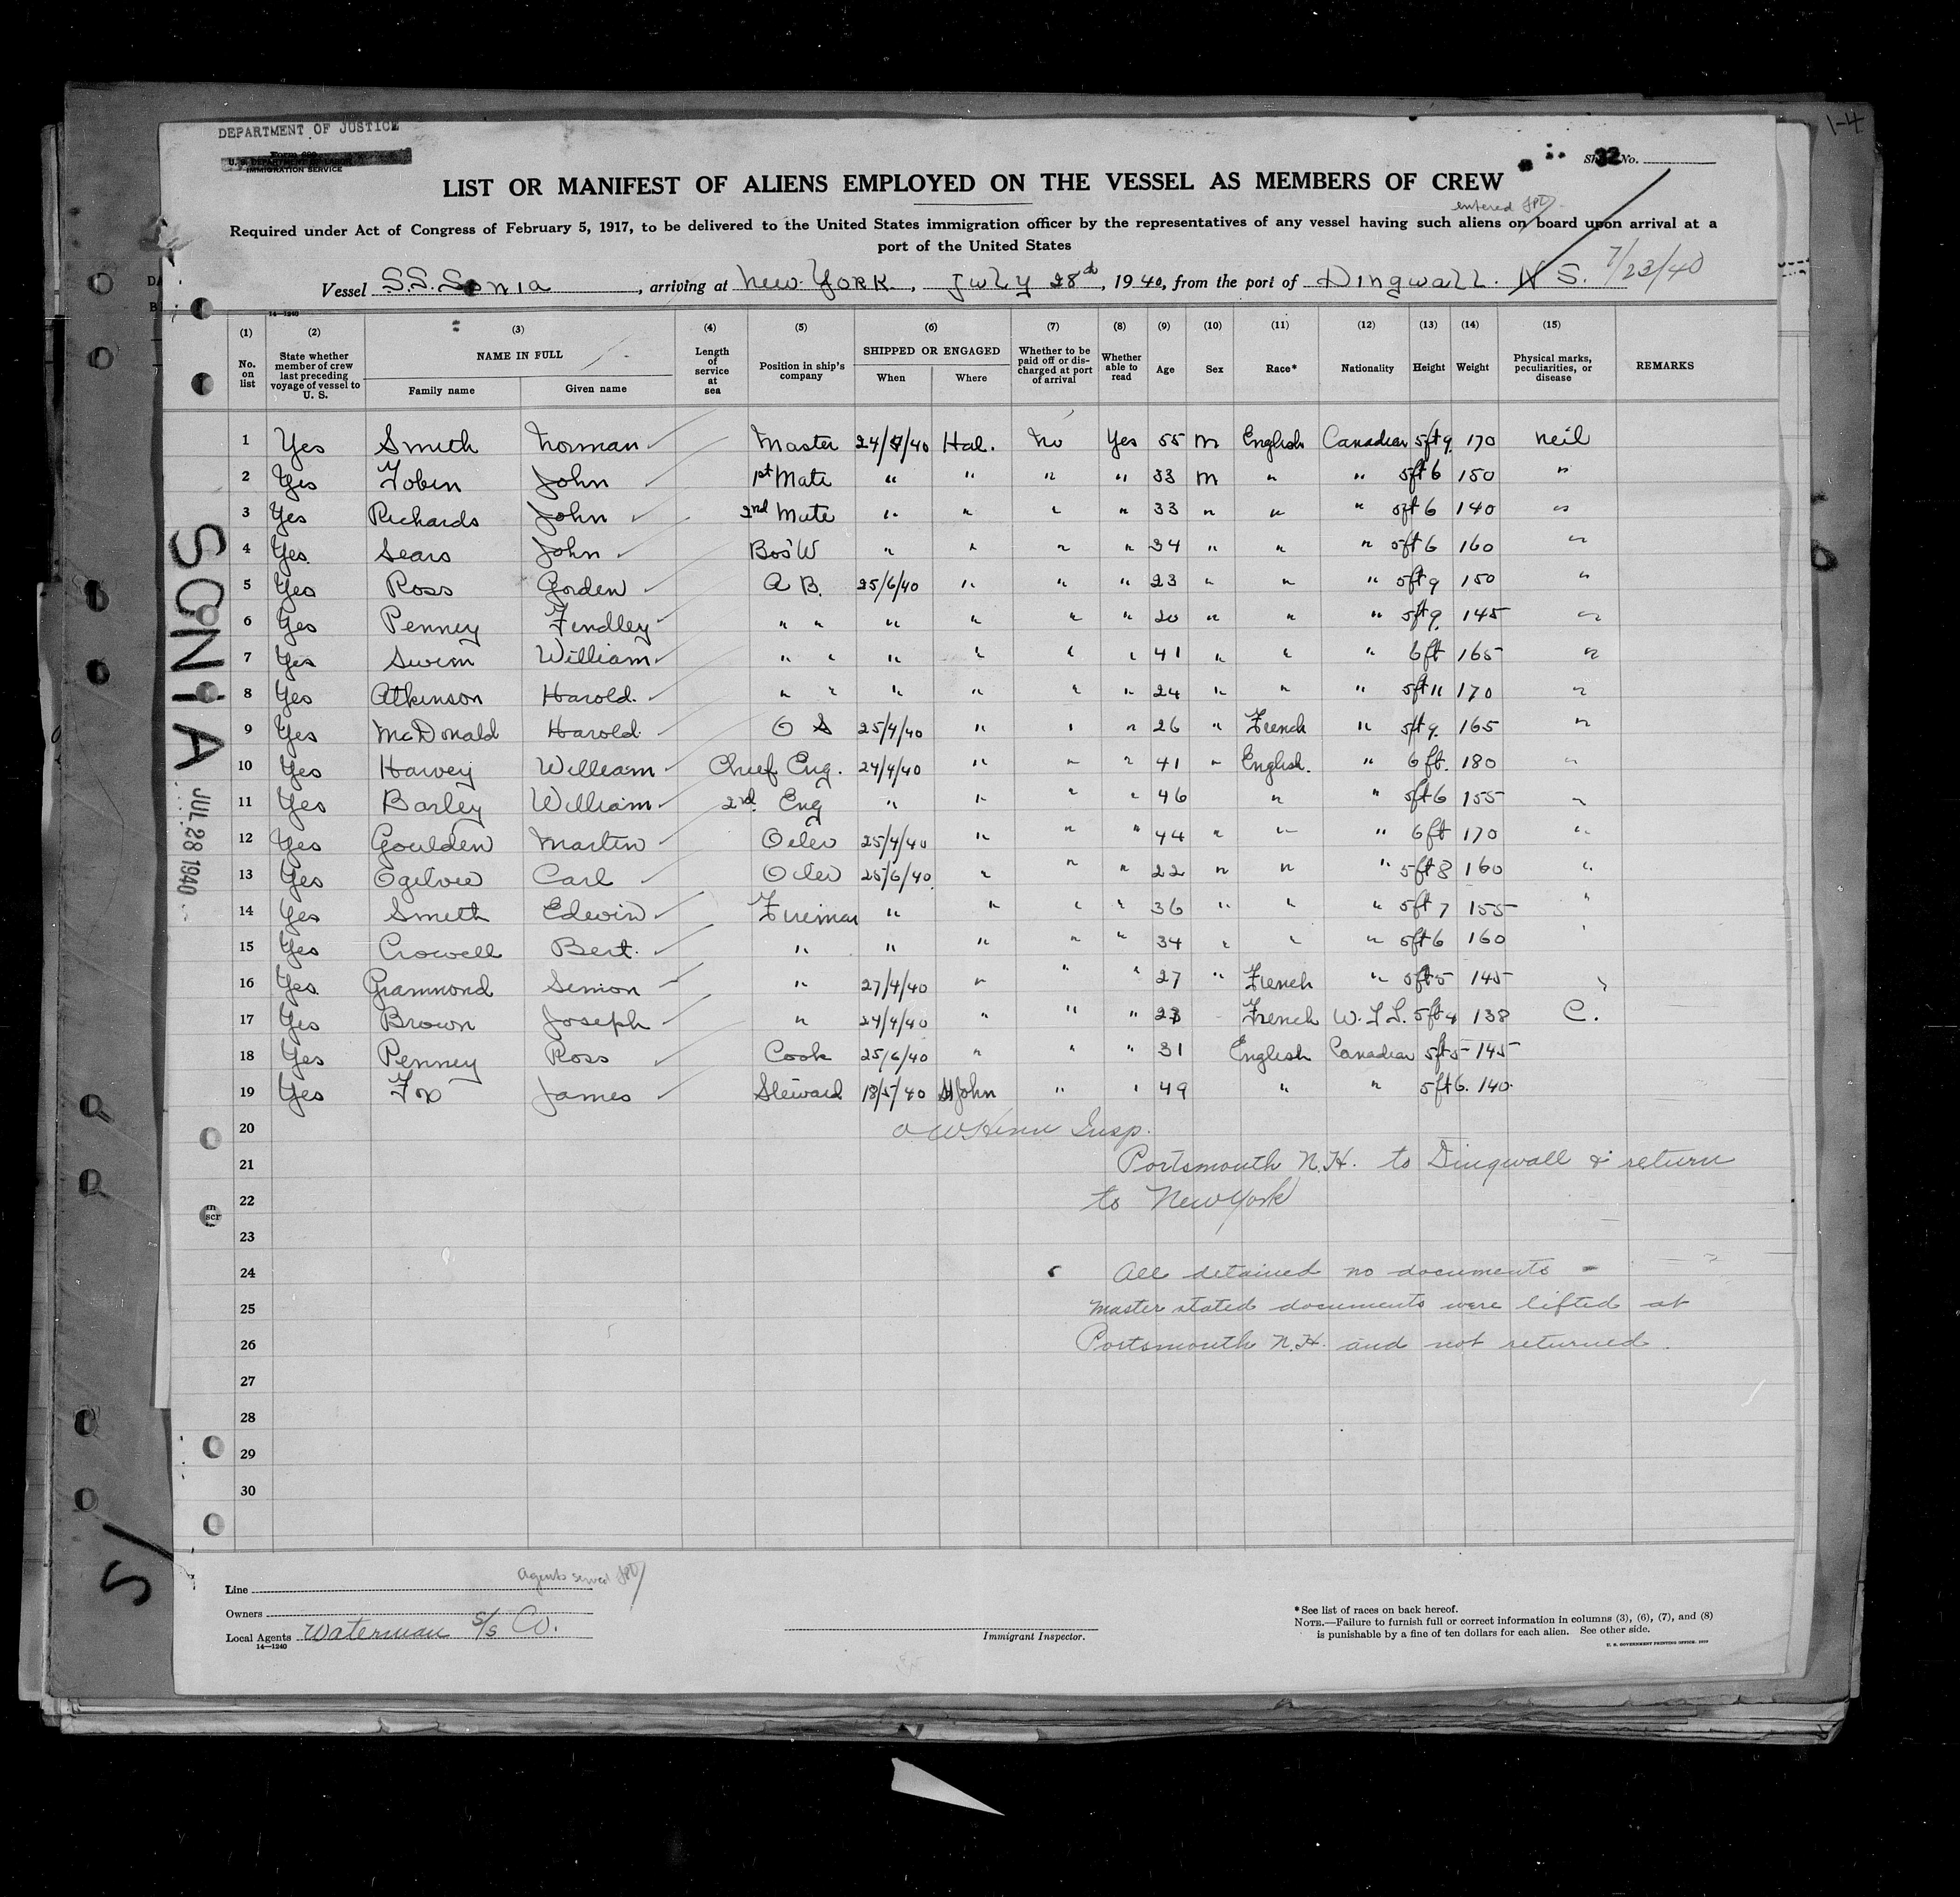 DEPARTMENT OF JUSTICE
IMMIGRATION SERVICE
1-4
32 No.
LIST OR MANIFEST OF ALIENS EMPLOYED ON THE VESSEL AS MEMBERS OF CREW
entered
Required under Act of Congress of February 5, 1917, to be delivered to the United States immigration officer by the representatives of any vessel having such aliens on board upon arrival at a
port of the United States
Vessel S.S. Sonia, arriving at New York, July 28d, 1940, from the port of Dingwall. N S. 7/23/40
14-1240
(1) (2) (3) (4) (5) (6) (7) (8) (9) (10) (11) (12) (13) (14) (15)
No. on list State whether member of crew last preceding voyage of vessel to U. S. NAME IN FULL Family name Given name Length of service at sea Position in ship's company SHIPPED OR ENGAGED When Where Whether to be paid off or discharged at port of arrival Whether able to read Age Sex Race* Nationality Height Weight Physical marks, peculiarities, or disease REMARKS
1 Yes Smith Norman Master 24/4/40 Hal. No Yes 55 m English Canadian 5ft9 170 neil
2 Yes Tobin John 1st Mate " " " " 33 m " " 5ft6 150 "
3 Yes Richards John 2nd Mate " " " " 33 " " " 5ft6 140 "
4 Yes Sears John Bos'W " " " " 34 " " " 5ft6 160 "
5 Yes Ross Gorden A B. 25/6/40 " " " 23 " " " 5ft9 150 "
6 Yes Penney Findley " " " " " " 20 " " " 5ft9 145 "
7 Yes Swim William " " " " " " 41 " " " 6ft 165 "
8 Yes Atkinson Harold " " " " " " 24 " " " 5ft11 170 "
9 Yes McDonald Harold O S 25/4/40 " " " 26 " French " 5ft9 165 "
10 Yes Harvey William Chief Eng. 24/4/40 " " " 41 " English. " 6 ft. 180 "
11 Yes Barley William 2nd Eng " " " " 46 " " 5ft6 155 "
12 Yes Goulden Martin Oiler 25/4/40 " " " 44 " " " 6ft 170 "
13 Yes Ogilvie Carl Oiler 25/6/40 " " " 22 " " " 5ft8 160 "
14 Yes Smith Edwin Fireman " " " " 36 " " " 5ft7 155 "
15 Yes Crowell Bert. " " " " " 34 " " " 5ft6 160 "
16 Yes Grammond Simon " 27/4/40 " " " 27 " French " 5ft5 145 "
17 Yes Brown Joseph " 24/4/40 " " " 23 French 5ft4 138 C.
18 Yes Penney Ross Cook 25/6/40 " " " 31 English Canadian 5ft5 145
19 Yes Fox James Steward 18/5/40 St John " " 49 " " 5ft6. 140.
20 Insp.
21 Portsmouth N.H. to Dingwall & return
22 to New York
23
24 All detained no documents -
25 Master stated documents were lifted at
26 Portsmouth N.H. and not returned.
27
28
29
30
SONIA
JUL 28 1940
S/
Agents served
Line
Owners
Local Agents Waterman S/S Co.
14-1240
Immigrant Inspector.
*See list of races on back hereof.
NOTE.—Failure to furnish full or correct information in columns (3), (6), (7), and (8)
is punishable by a fine of ten dollars for each alien. See other side.